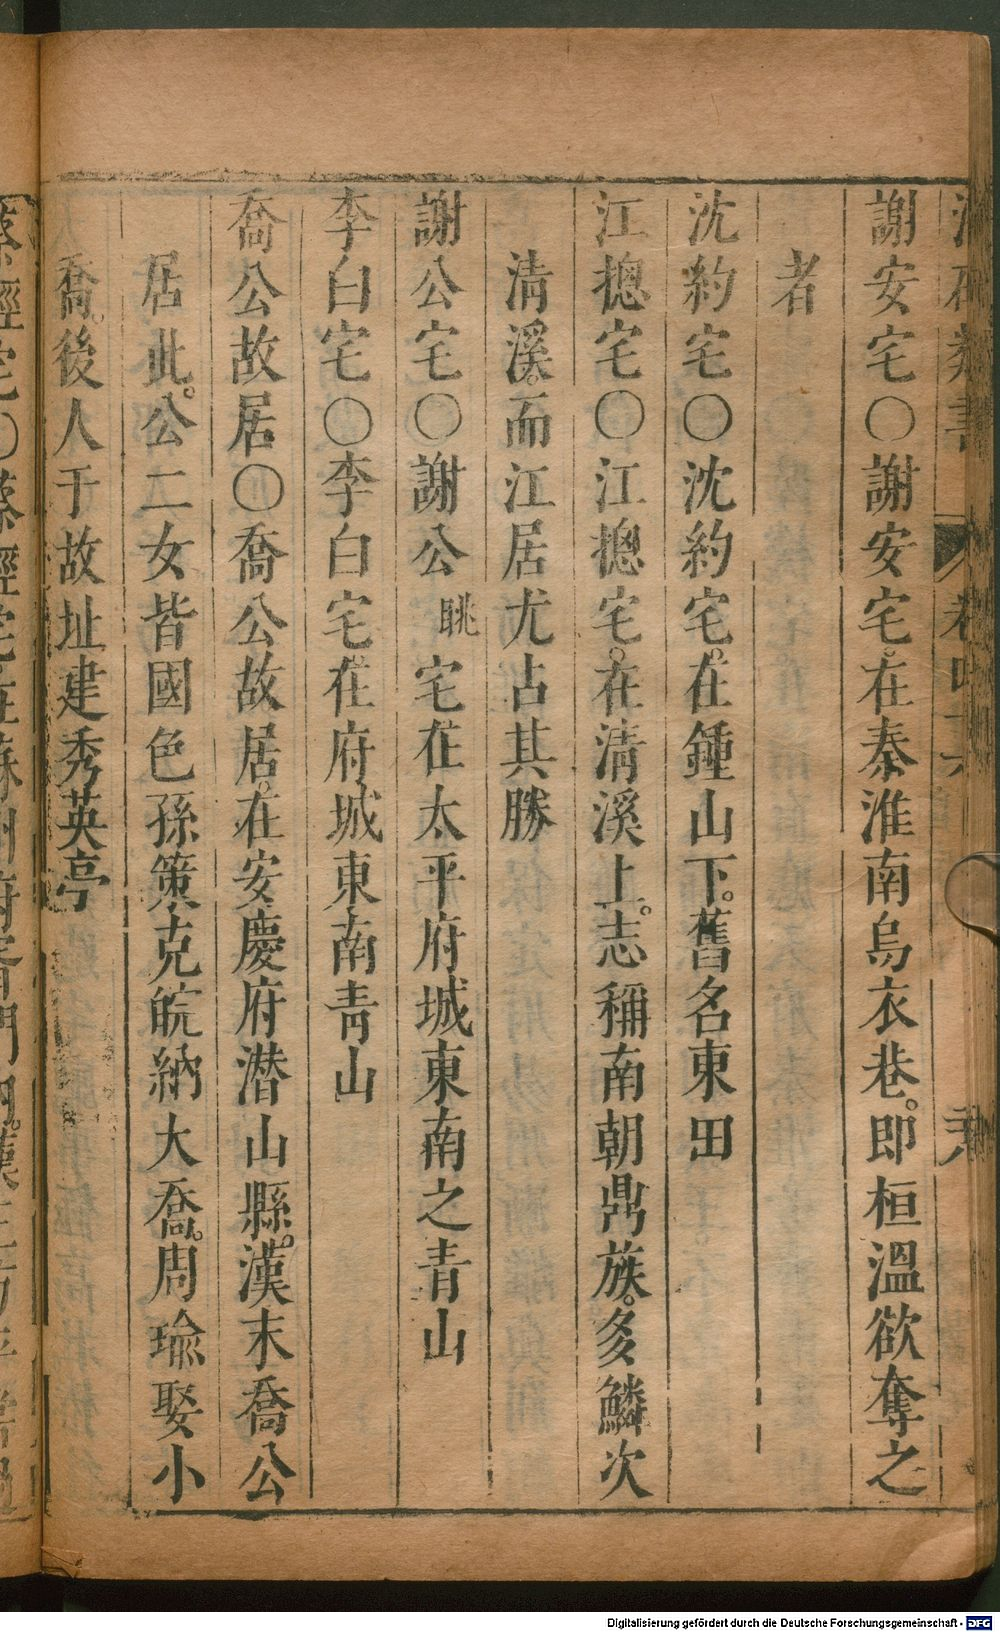 謝安宅〇謝安宅。在秦淮南烏衣巷。即桓溫欲奪之
者
沈約宅〇沈約宅。在鍾山下。舊名東田
江摠宅〇江摠宅。在清溪上。志稱南朝鼎族。多鱗次
清溪。而江居尤占其勝
謝公宅〇謝公眺宅在太平府城東南之青山
李白宅〇李白宅。在府城東南青山
喬公故居〇喬公故居。在安慶府潜山縣。漢末喬公
居此。公二女皆國色孫策克皖納大喬。周瑜娶小
喬。後人于故址建秀英亭
Digitalisierung gefördert durch die Deutsche Forschungsgemeinschaft - DFG